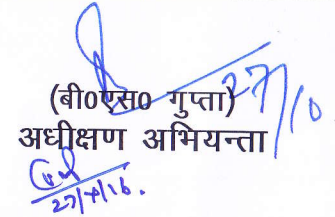 27/10
(बी0एस0 गुप्ता)
अधीक्षण अभियन्ता